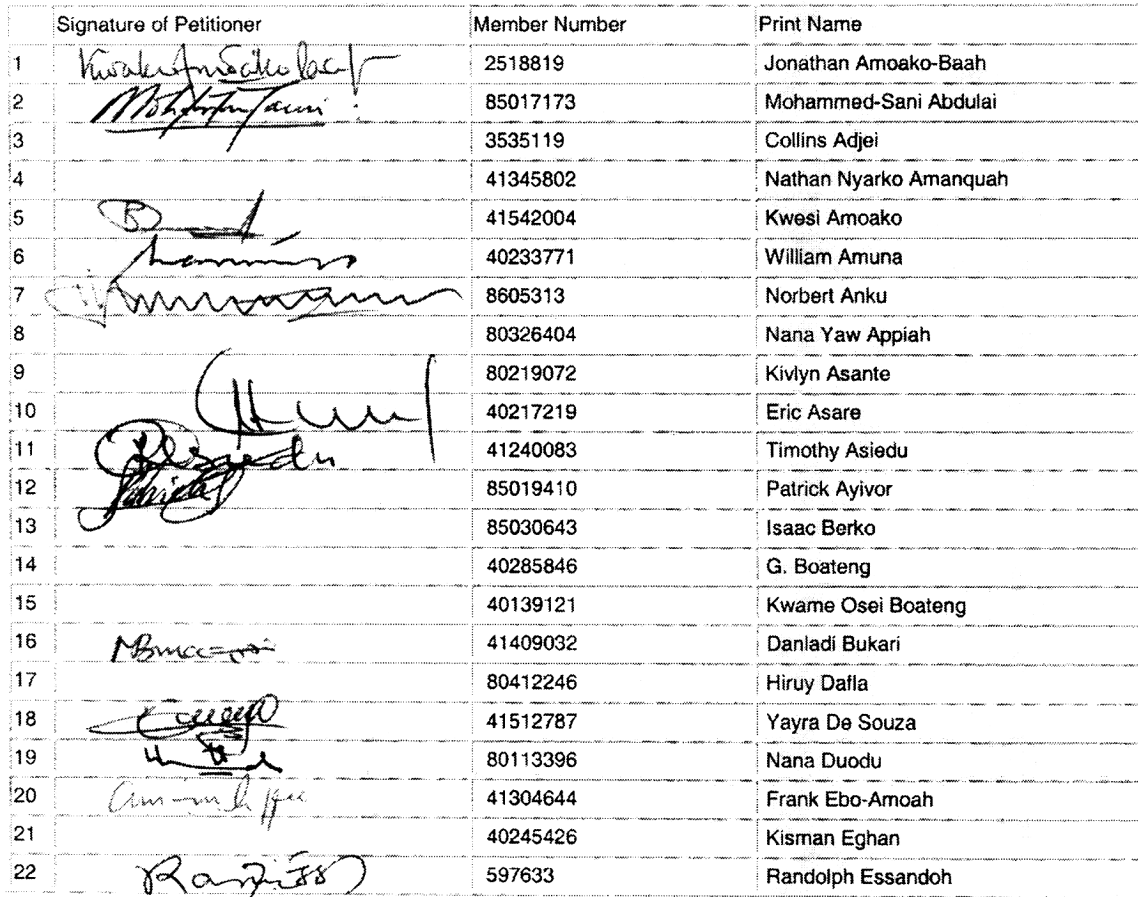 Signature of Petitioner Member Number Print Name
1 2518819 Jonathan Amoako-Baah
2 85017173 Mohammed-Sani Abdulai
3 3535119 Collins Adjei
4 41345802 Nathan Nyarko Amanquah
5 41542004 Kwesi Amoako
6 40233771 William Amuna
7 8605313 Norbert Anku
8 80326404 Nana Yaw Appiah
9 80219072 Kivlyn Asante
10 40217219 Eric Asare
11 41240083 Timothy Asiedu
12 85019410 Patrick Ayivor
13 85030643 Isaac Berko
14 40285846 G. Boateng
15 40139121 Kwame Osei Boateng
16 41409032 Danladi Bukari
17 80412246 Hiruy Dafla
18 41512787 Yayra De Souza
19 80113396 Nana Duodu
20 41304644 Frank Ebo-Amoah
21 40245426 Kisman Eghan
22 597633 Randolph Essandoh